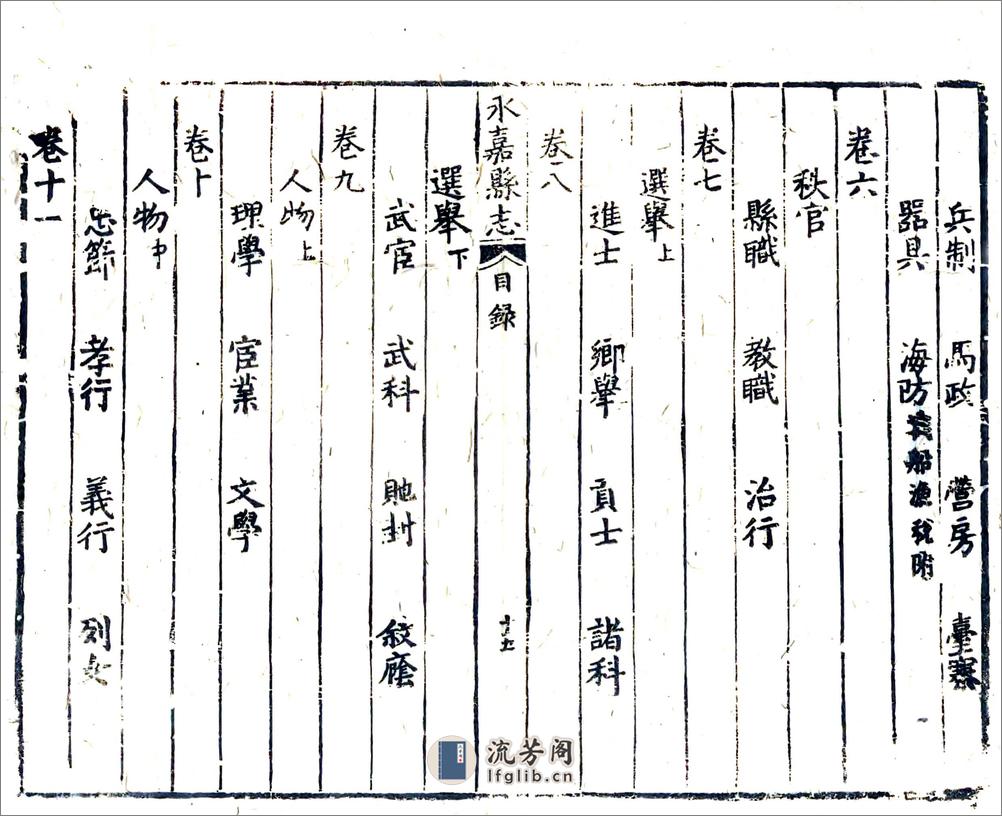 兵制 馬政 營房 臺寨
器具 海防 戰船漁稅附
卷六
秩官
縣職 教職 治行
卷七
選舉上
進士 鄉舉 貢士 諸科
卷八
永嘉縣志 目錄
選舉下
武宦 武科 貤封 敘廕
卷九
人物上
理學 宦業 文學
卷十
人物中
忠節 孝行 義行 列女
卷十一
流芳阁
lfglib.cn